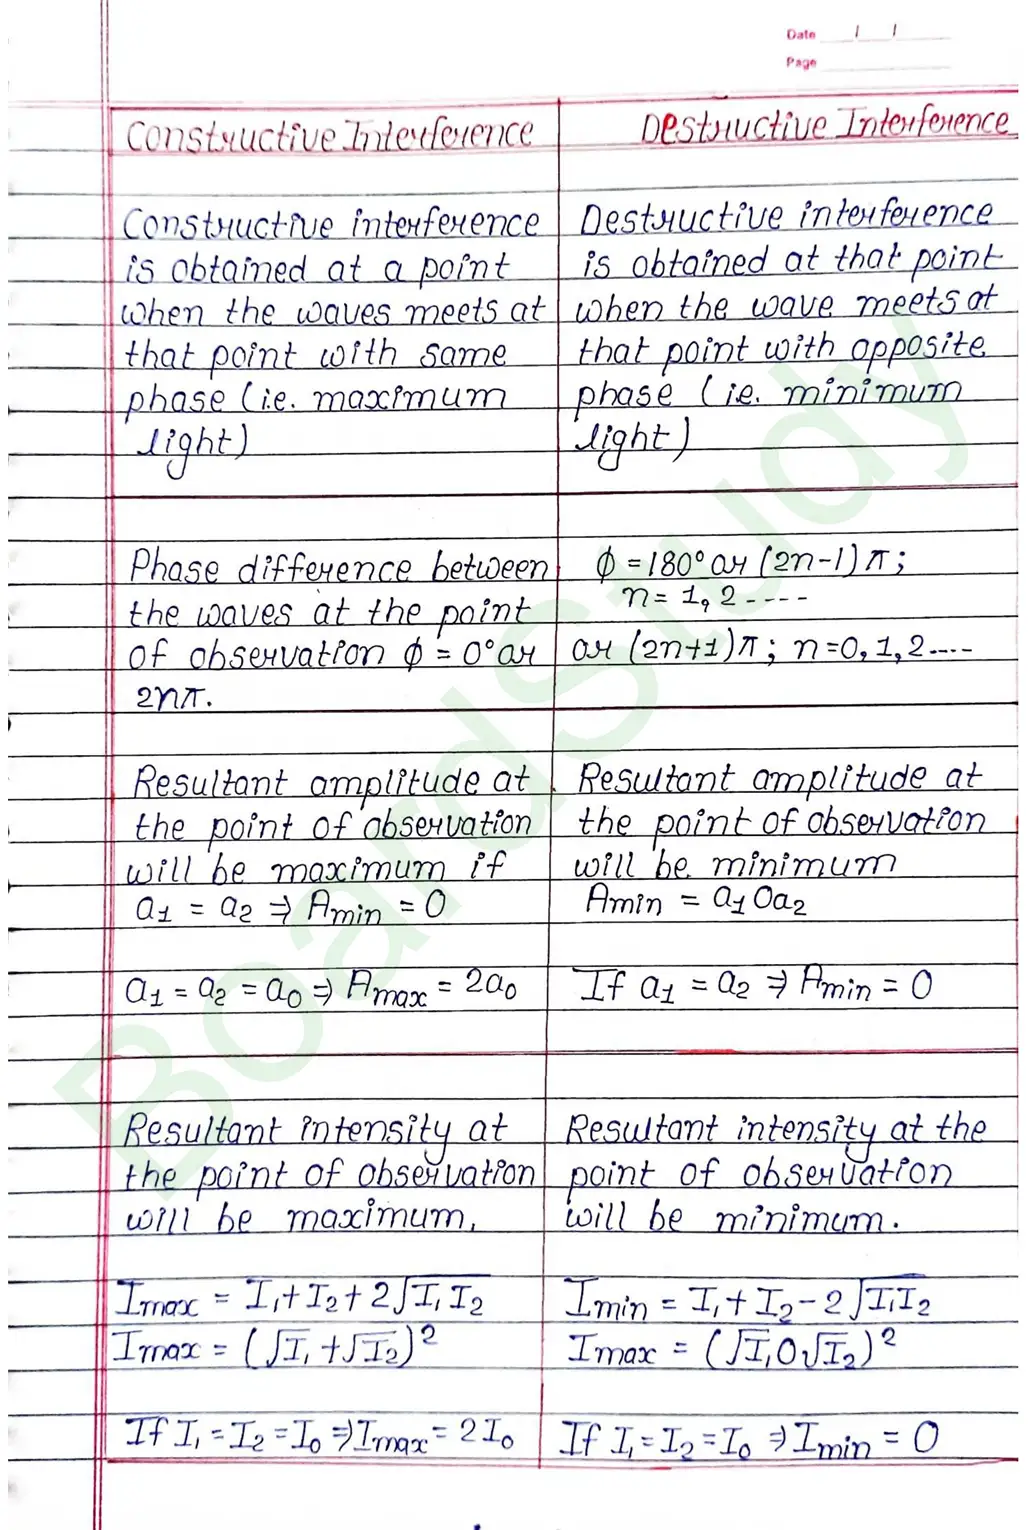 Date / /
Page
Constructive Interference
Destructive Interference
Constructive interference
is obtained at a point
when the waves meets at
that point with same
phase (i.e. maximum
light)
Destructive interference
is obtained at that point
when the wave meets at
that point with opposite
phase (i.e. minimum
light)
Phase difference between
the waves at the point
of observation ϕ = 0° or
2nπ.
ϕ = 180° or (2n-1) π ;
n = 1, 2 - - - -
or (2n+1)π ; n=0, 1, 2 ----
Resultant amplitude at
the point of observation
will be maximum if
a₁ = a₂ ⇒ Amin = 0
a₁ = a₂ = a₀ ⇒ Amax = 2a₀
Resultant amplitude at
the point of observation
will be minimum
Amin = a₁ 0a₂
If a₁ = a₂ ⇒ Amin = 0
Resultant intensity at
the point of observation
will be maximum.
Imax = I₁+ I₂ + 2√I₁ I₂
Imax = (√I₁ +√I₂)²
If I₁ = I₂ = I₀ ⇒ Imax = 2 I₀
Resultant intensity at the
point of observation
will be minimum.
Imin = I₁ + I₂ - 2 √I₁I₂
Imax = (√I₁0√I₂)²
If I₁ = I₂ = I₀ ⇒ Imin = 0
BoardStudy